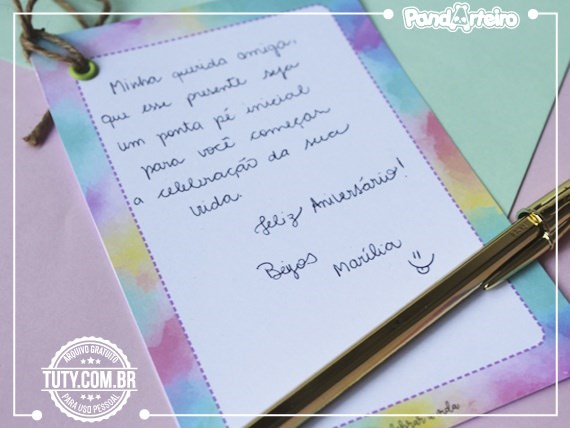 PandArteiro
Minha querida amiga,
que esse presente seja
um ponta pé inicial
para você começar
a celebração da sua
vida.
Feliz Aniversário!
Beijos
Marília
ARQUIVO GRATUITO
TUTY.COM.BR
PARA USO PESSOAL